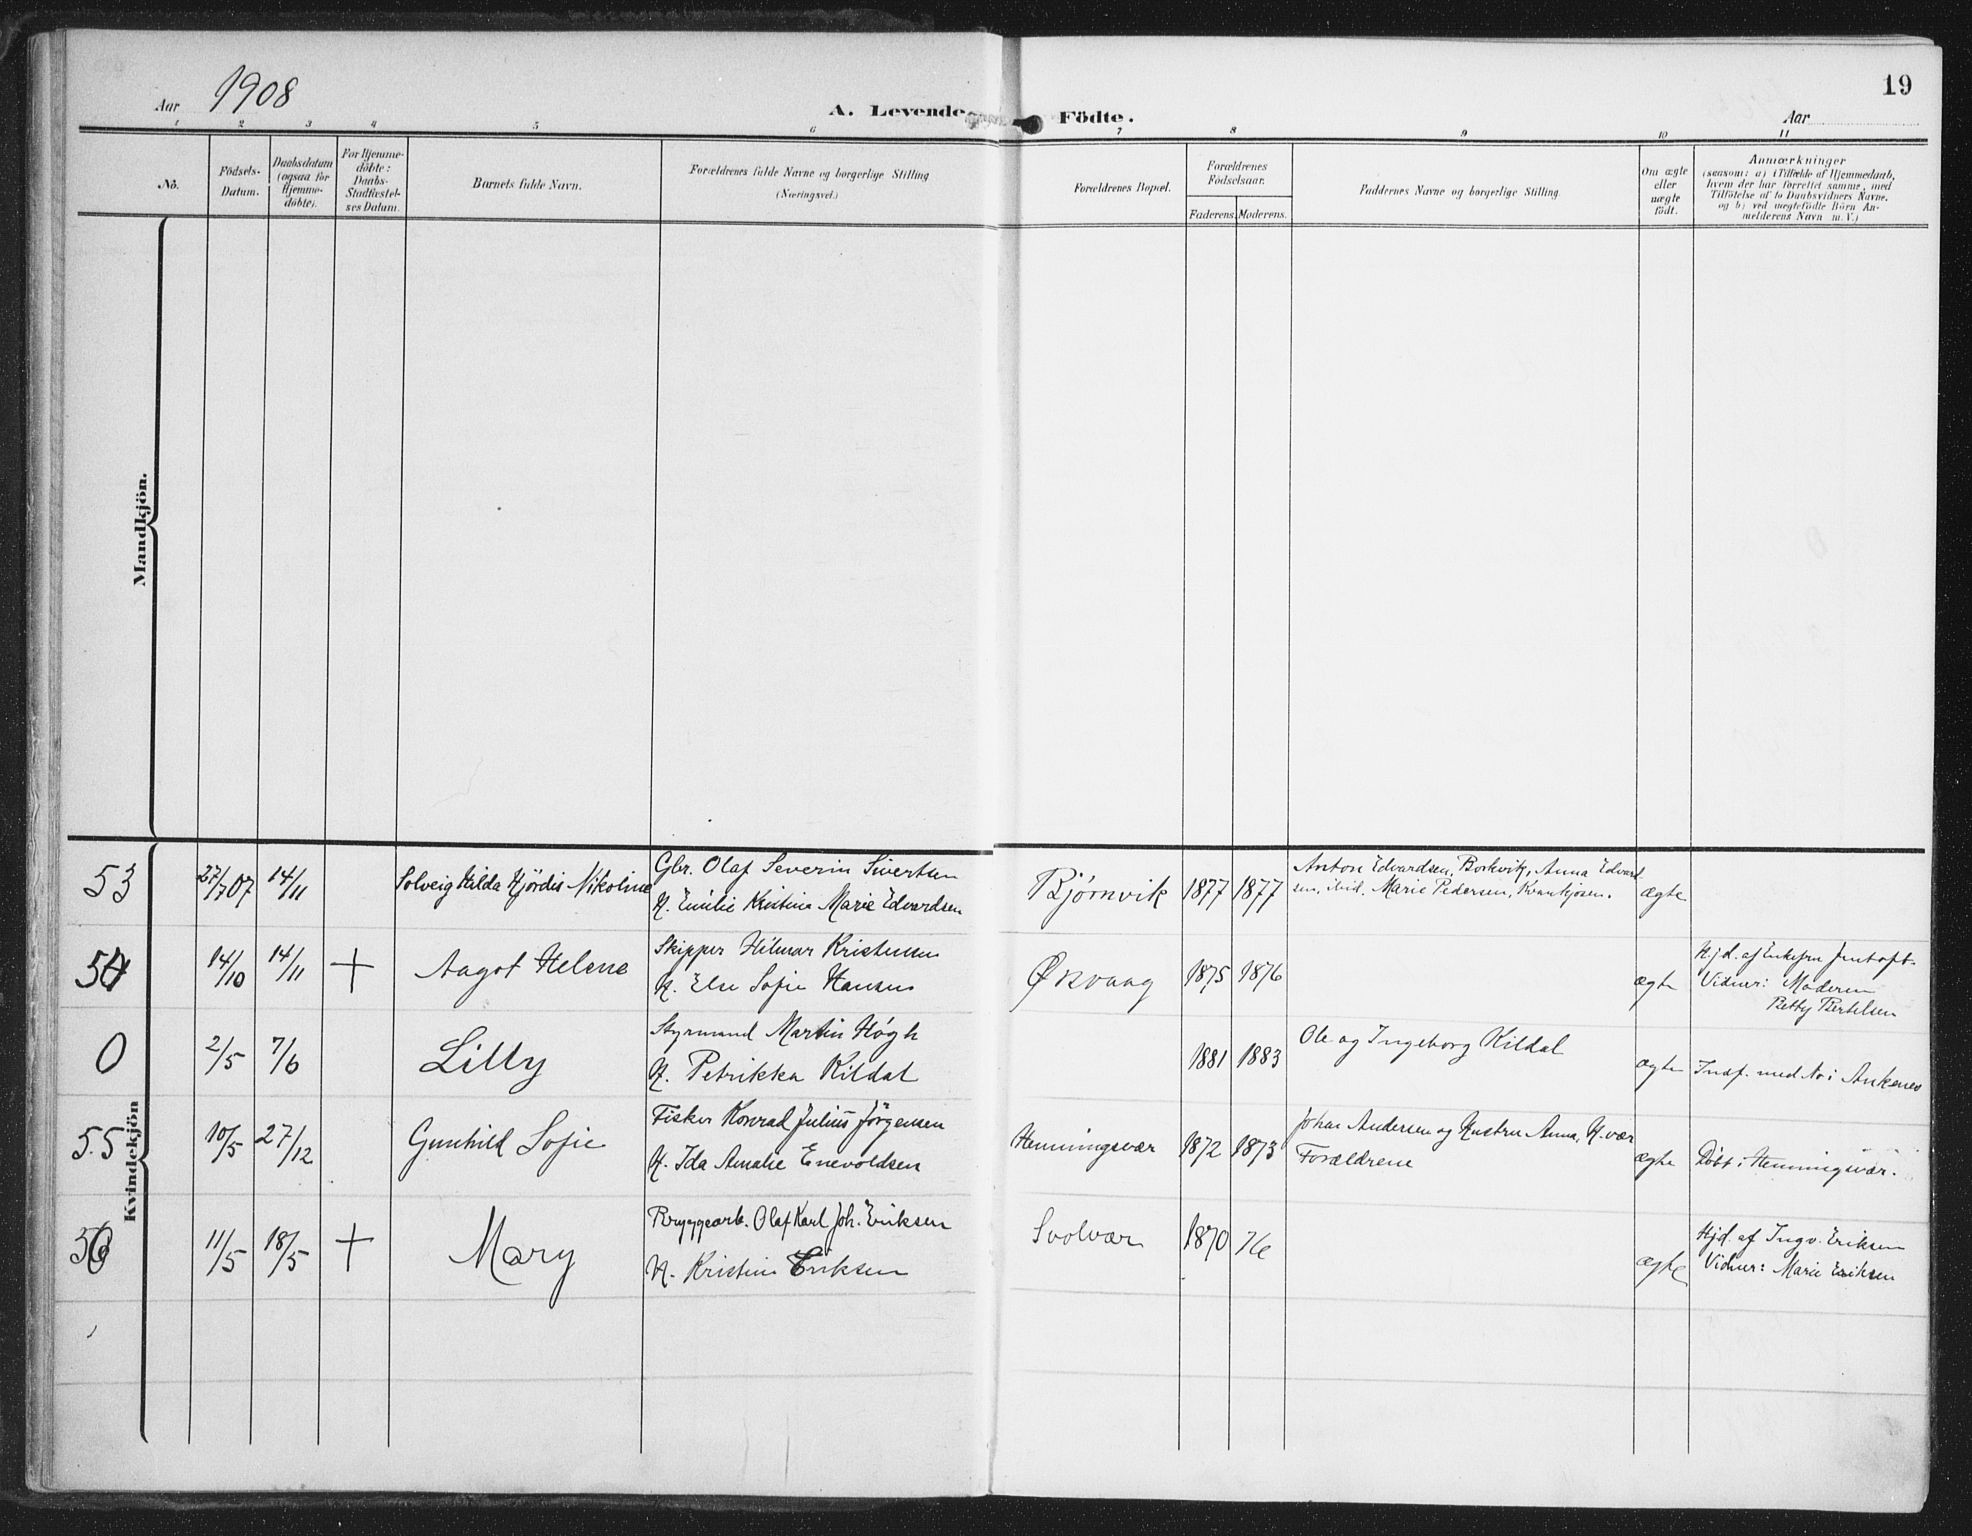 Aar 1908
A. Levende Födte.
19
Aar
1 2 3 4 5 6 7 8 9 10 11
No.
Födsels-
Datum.
Daabsdatum
(ogsaa for
Hjemme-
döbte).
For Hjemme-
döbte:
Daabs-
Stadfæstel-
ses Datum.
Barnets fulde Navn.
Forældrenes fulde Navne og borgerlige Stilling
(Næringsvei.)
Forældrenes Bopæl.
Forældrenes
Födselsaar.
Faderens. Moderens.
Faddernes Navne og borgerlige Stilling.
Om ægte
eller
uægte
födt.
Anmærkninger
(saasom: a) i Tilfælde af Hjemmedaab,
hvem der har forrettet samme, med
Tilföielse af to Daabsvidners Navne.
og b) ved uægtefödte Börn An-
melderens Navn m. V.)
Mandkjön.
Kvindekjön
53 27/7 07 14/11 Solveig Hilda Hjördis Nikoline
Gbr. Olaf Severin Sivertsen
H. Emilie Kristine Marie Edvardsen
Bjørnvik 1877 1877
Anton Edvardsen, Borkvik, Anna Edvard
sen, ibid. Marie Pedersen,
ægte
54 14/10 14/11 + Aagot Helene
Skipper Hilmar Kristensen
H. Else Sofie Hansen
Ørsvaag 1875 1876
ægte
Hjd. af Enkefru Jentoft.
Vidner: Moderen
Betty Bertelsen
0 2/5 7/6 Lilly
Styrmand Martin Høgh
H. Petrikka Kildal
1881 1883
Ole og Ingeborg Kildal
ægte
Indf. med No i Ankenes
55 10/5 27/12 Gunhild Sofie
Fisker Konrad Julius Jörgensen
H. Ida Amalie Enevoldsen
Henningsvær 1872 1873
Johan Andersen og Hustru Anna, H.vær
Forældrene
ægte
Döbt i Henningsvær.
56 11/5 18/5 + Mary
Bryggearb. Olaf Karl Joh. Eriksen
H. Kristine Eriksen
Svolvær 1870 76
ægte
Hjd. af Ingv. Eriksen
Vidner: Marie Eriksen